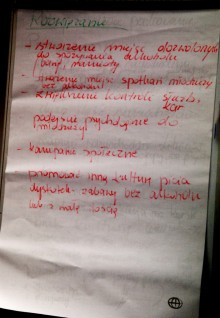 Rozwiązanie
- stworzenie miejsc dozwolonych
do spożywania alkoholu
(bary, marinisty)
- tworzenie miejsc spotkań młodzieży
bez alkoholu
zwiększenie kontroli służb
kar
podejście psychologiczne do
młodzieży
- kampanie społeczne
promować inną kulturę picia
dyskotek - zabawy bez alkoholu
lub z małą ilością